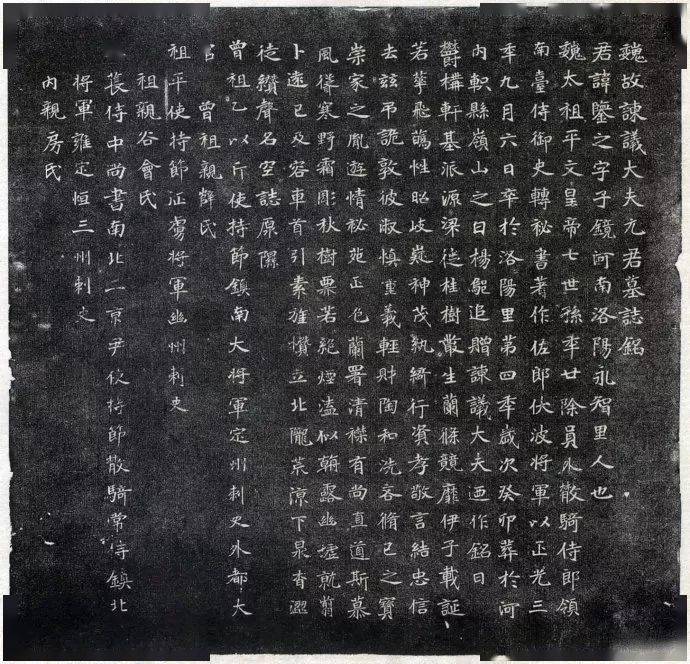 魏故諫議大夫元君墓誌銘
君諱鑒之字子鏡河南洛陽永智里人也
魏太祖平文皇帝七世孫年廿除員外散騎侍郎領
南臺侍御史轉祕書著作佐郎伏波將軍以正光三
年九月六日卒於洛陽里第四年歲次癸卯葬於河
內軹縣嶺山之日楊 追贈諫議大夫迺作銘曰
鬱構軒基派源深從桂樹叢生蘭條競靡伊子載誕
若華飛 性昭岐嶷神茂紈綺行資孝敬言結忠信
去茲弔詭敦彼淑慎重義輕財陶和洗吝脩己之寶
崇家之胤遊情祕苑正色蘭署清襟有尚直道斯慕
風悽寒野霜彫秋樹票若絕煙溘似朝露幽墟就翦
卜遠已及容車首引素旌 立北隴荒涼下泉杳澀
徒纘聲名空誌原隰
曾祖乙以斤使持節鎮南大將軍定州刺史外都大
官 曾祖親薛氏
祖平使持節征虜將軍幽州刺史
祖親谷會氏
萇侍中尚書南北二京尹使持節散騎常侍鎮北
將軍雍定恒三州刺史
內親房氏